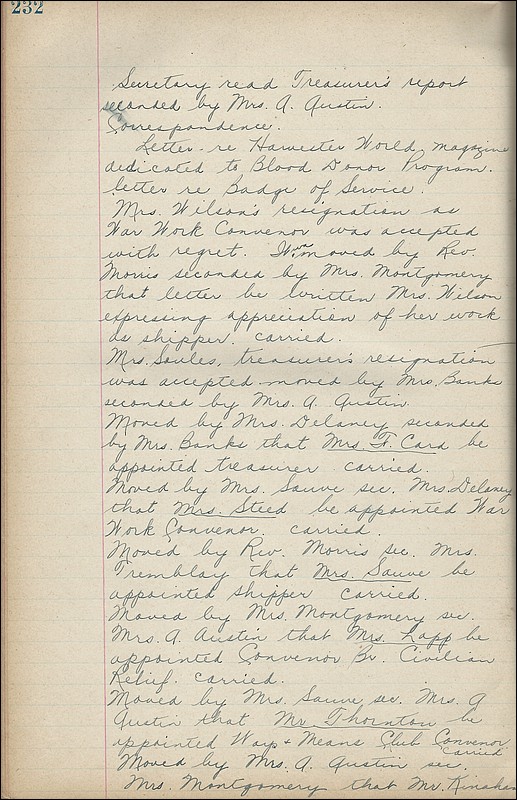 232
Secretary read Treasurer's report
seconded by Mrs. A. Austin.
Correspondence.
Letter re Harvester World magazine
dedicated to Blood Donor Program.
letter re Badge of Service.
Mrs. Wilson's resignation as
War Work Convenor was accepted
with regret. It was moved by Rev.
Morris seconded by Mrs. Montgomery
that letter be written Mrs. Wilson
expressing appreciation of her work
as shipper. carried.
Mrs. Soules, treasurer's resignation
was accepted moved by Mrs. Banks
seconded by Mrs. A. Austin.
Moved by Mrs. Delaney seconded
by Mrs. Banks that Mrs. F. Card be
appointed treasurer carried.
Moved by Mrs. Sauve sec. Mrs. Delaney
that Mrs. Steed be appointed War
Work Convenor. carried.
Moved by Rev. Morris sec. Mrs.
Tremblay that Mrs. Sauve be
appointed shipper carried.
Moved by Mrs. Montgomery sec.
Mrs. A. Austin that Mrs. Lapp be
appointed Convenor Br. Civilian
Relief. carried.
Moved by Mrs. Sauve sec. Mrs. A
Austin that Mr. Thornton be
appointed Ways + Means Club Convenor
carried
Moved by Mrs. A. Austin sec.
Mrs. Montgomery that Mr. Kinahan